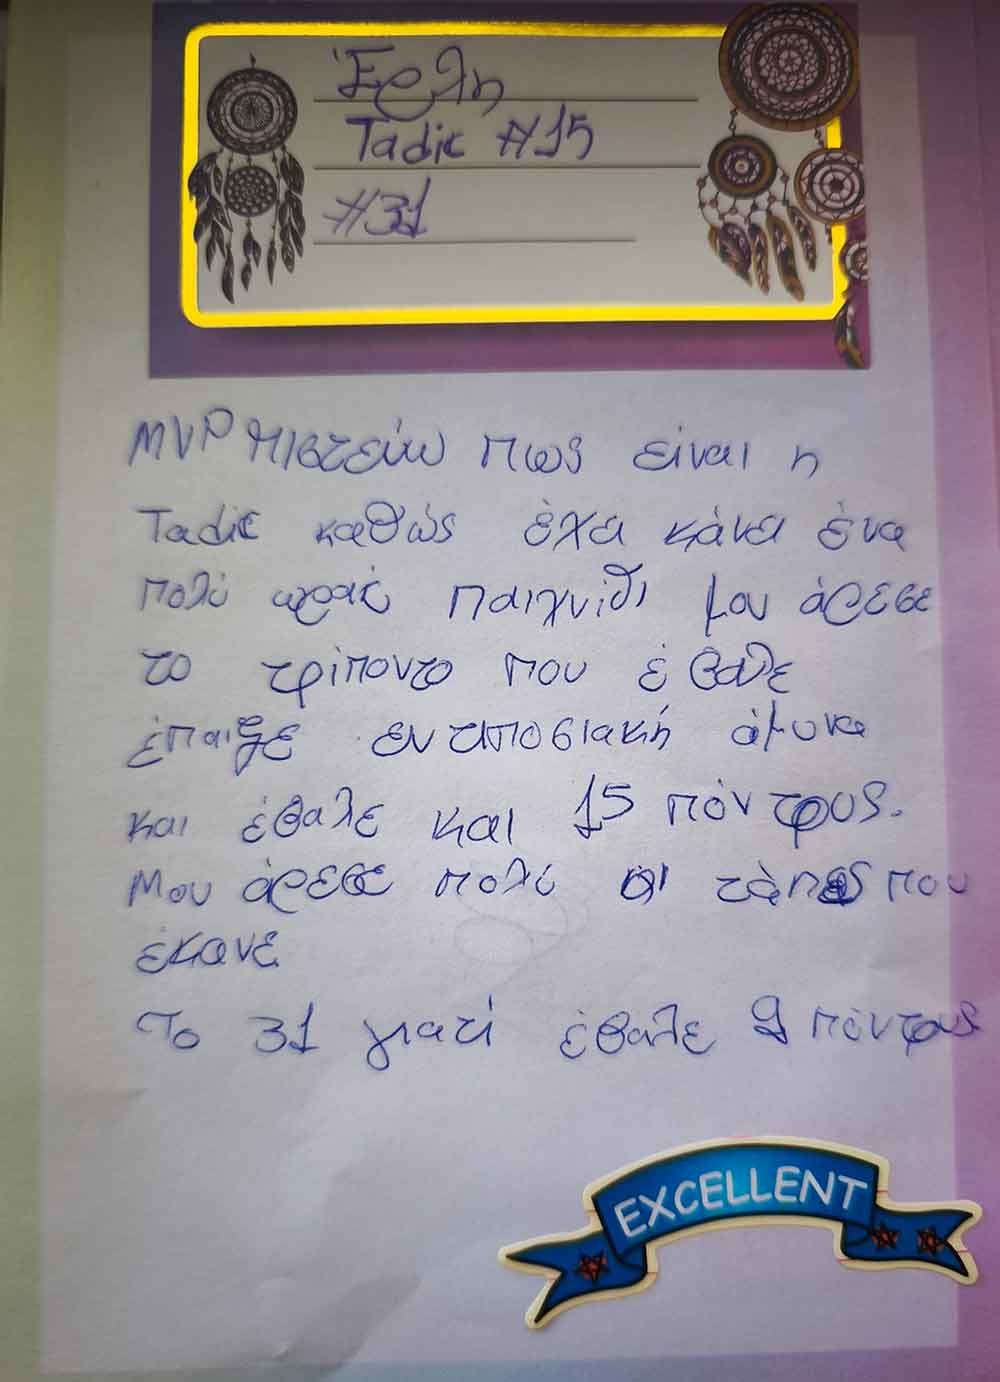 Έρλη
Tadic #15
#31
MVP πιστεύω πως είναι η
Tadic καθώς έχει κάνει ένα
πολύ ωραίο παιχνίδι μου άρεσε
το τρίποντο που έβαλε
έπαιξε εντυποσιακή άμυνα
και έβαλε και 15 πόντους.
Μου άρεσε πολύ οι τάπες που
έκανε
Το 31 γιατί έβαλε 9 πόντους
EXCELLENT